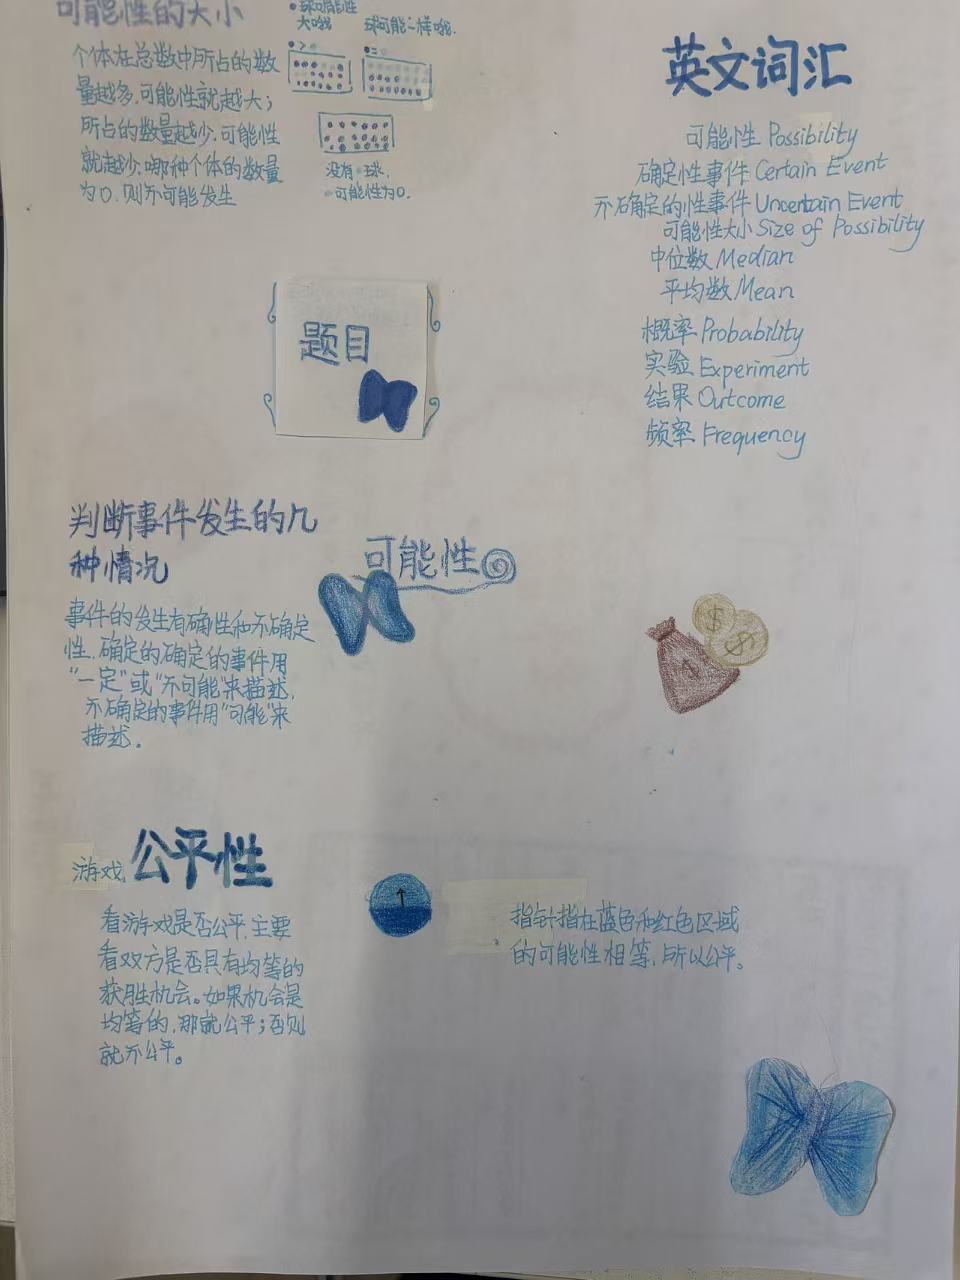 可能性的大小
个体在总数中所占的数
量越多,可能性就越大;
所占的数量越少,可能性
就越少,哪种个体的数量
为0,则不可能发生
球可能性
大哦
球可能一样哦.
没有 球,
可能性为0.
英文词汇
可能性 Possibility
确定性事件 Certain Event
不确定的性事件 Uncertain Event
可能性大小 Size of Possibility
中位数 Median
平均数 Mean
概率 Probability
实验 Experiment
结果 Outcome
频率 Frequency
题目
判断事件发生的几
种情况
事件的发生有确性和不确定
性,确定的确定的事件用
"一定"或"不可能"来描述,
不确定的事件用"可能"来
描述.
可能性
$
$
游戏公平性
看游戏是否公平,主要
看双方是否具有均等的
获胜机会。如果机会是
均等的,那就公平;否则
就不公平。
指针指在蓝色和红色区域
的可能性相等,所以公平。